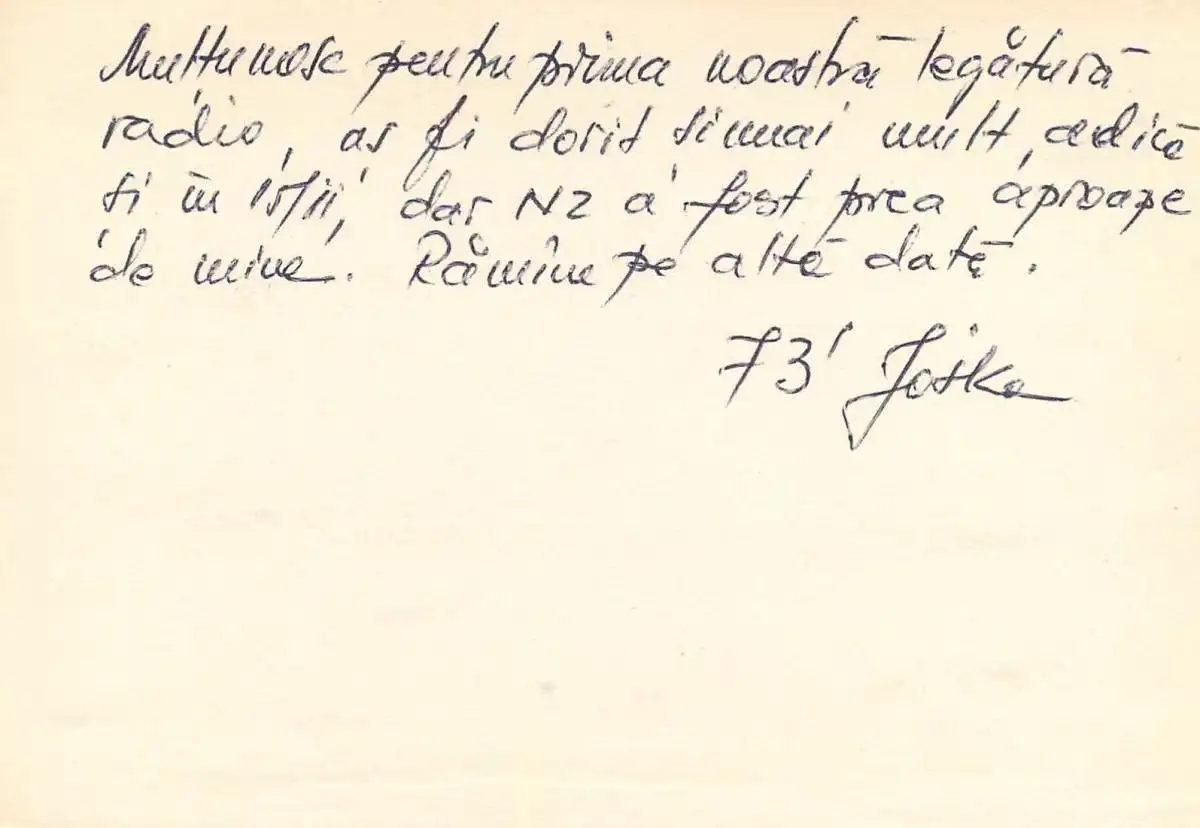 Multumosc pentru prima noastră legătură
radio, as fi dorit si mai mult, adică
si în 15/II, dar NZ a fost prea aproape
de mine. Rămîne pe altă dată.
73' Joska